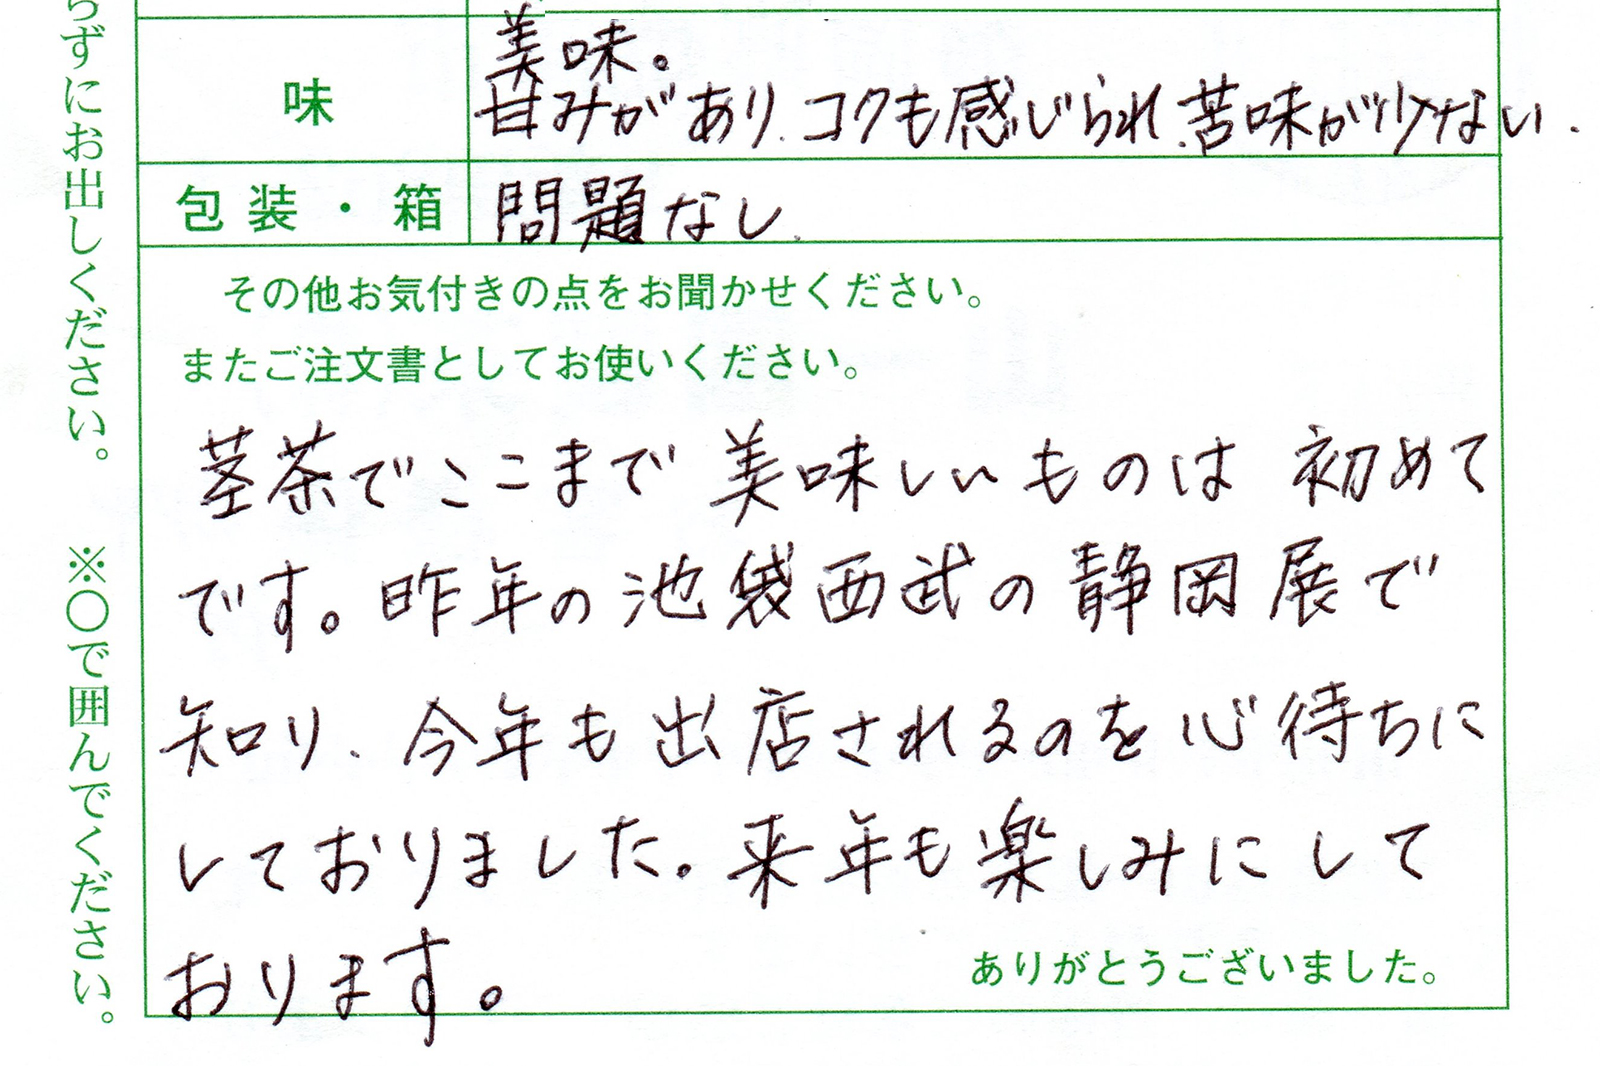 らずにお出しください。　※〇で囲んでください。
味
美味。
甘みがあり、コクも感じられ、苦味が少ない.
包装・箱
問題なし.
その他お気付きの点をお聞かせください。
またご注文書としてお使いください。
茎茶でここまで美味しいものは初めて
です。昨年の池袋西武の静岡展で
知り、今年も出店されるのを心待ちに
しておりました。来年も楽しみにして
おります。
ありがとうございました。